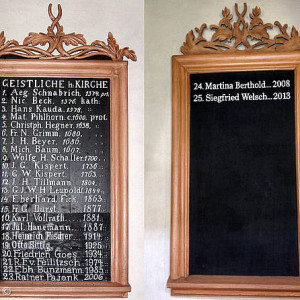 GEISTLICHE in KIRCHE
1. Aeg. Schnabrich. 1375. pit.
2. Nic. Beck. 1376. kath.
3. Hans Kauda. 1378.
4. Mat. Pihlhorn. c.1600. prot.
5. Christph. Hegner. 1658.
6. Fr. N. Grimm, 1680,
7. J. H. Beyer, 1686,
8. Mich. Baum, 1697,
9. Wolfg. H. Schaller. 1700
10. J. G. Kispert, 1736,
11. G. W. Kispert. 1763.
12. J. H. Tillmann, 1804,
13. G.J.W.H. Leupold. 1844
14. Eberhard Firk. 1863
15. Fr. G. Dürst. 1877
16. Karl Vollrath. 1881
17. Jul. Hanemann. 1887
18. Heinrich Fischer. 1914
19. Otto Sittig. 1925
20. Friedrich Goes 1934
21. R.F.v. Feilitzsch 1974
22. Ebh. Bunzmann 1985
23. Rainer Pajonk 2006
24. Martina Berthold... 2008
25. Siegfried Welsch... 2013